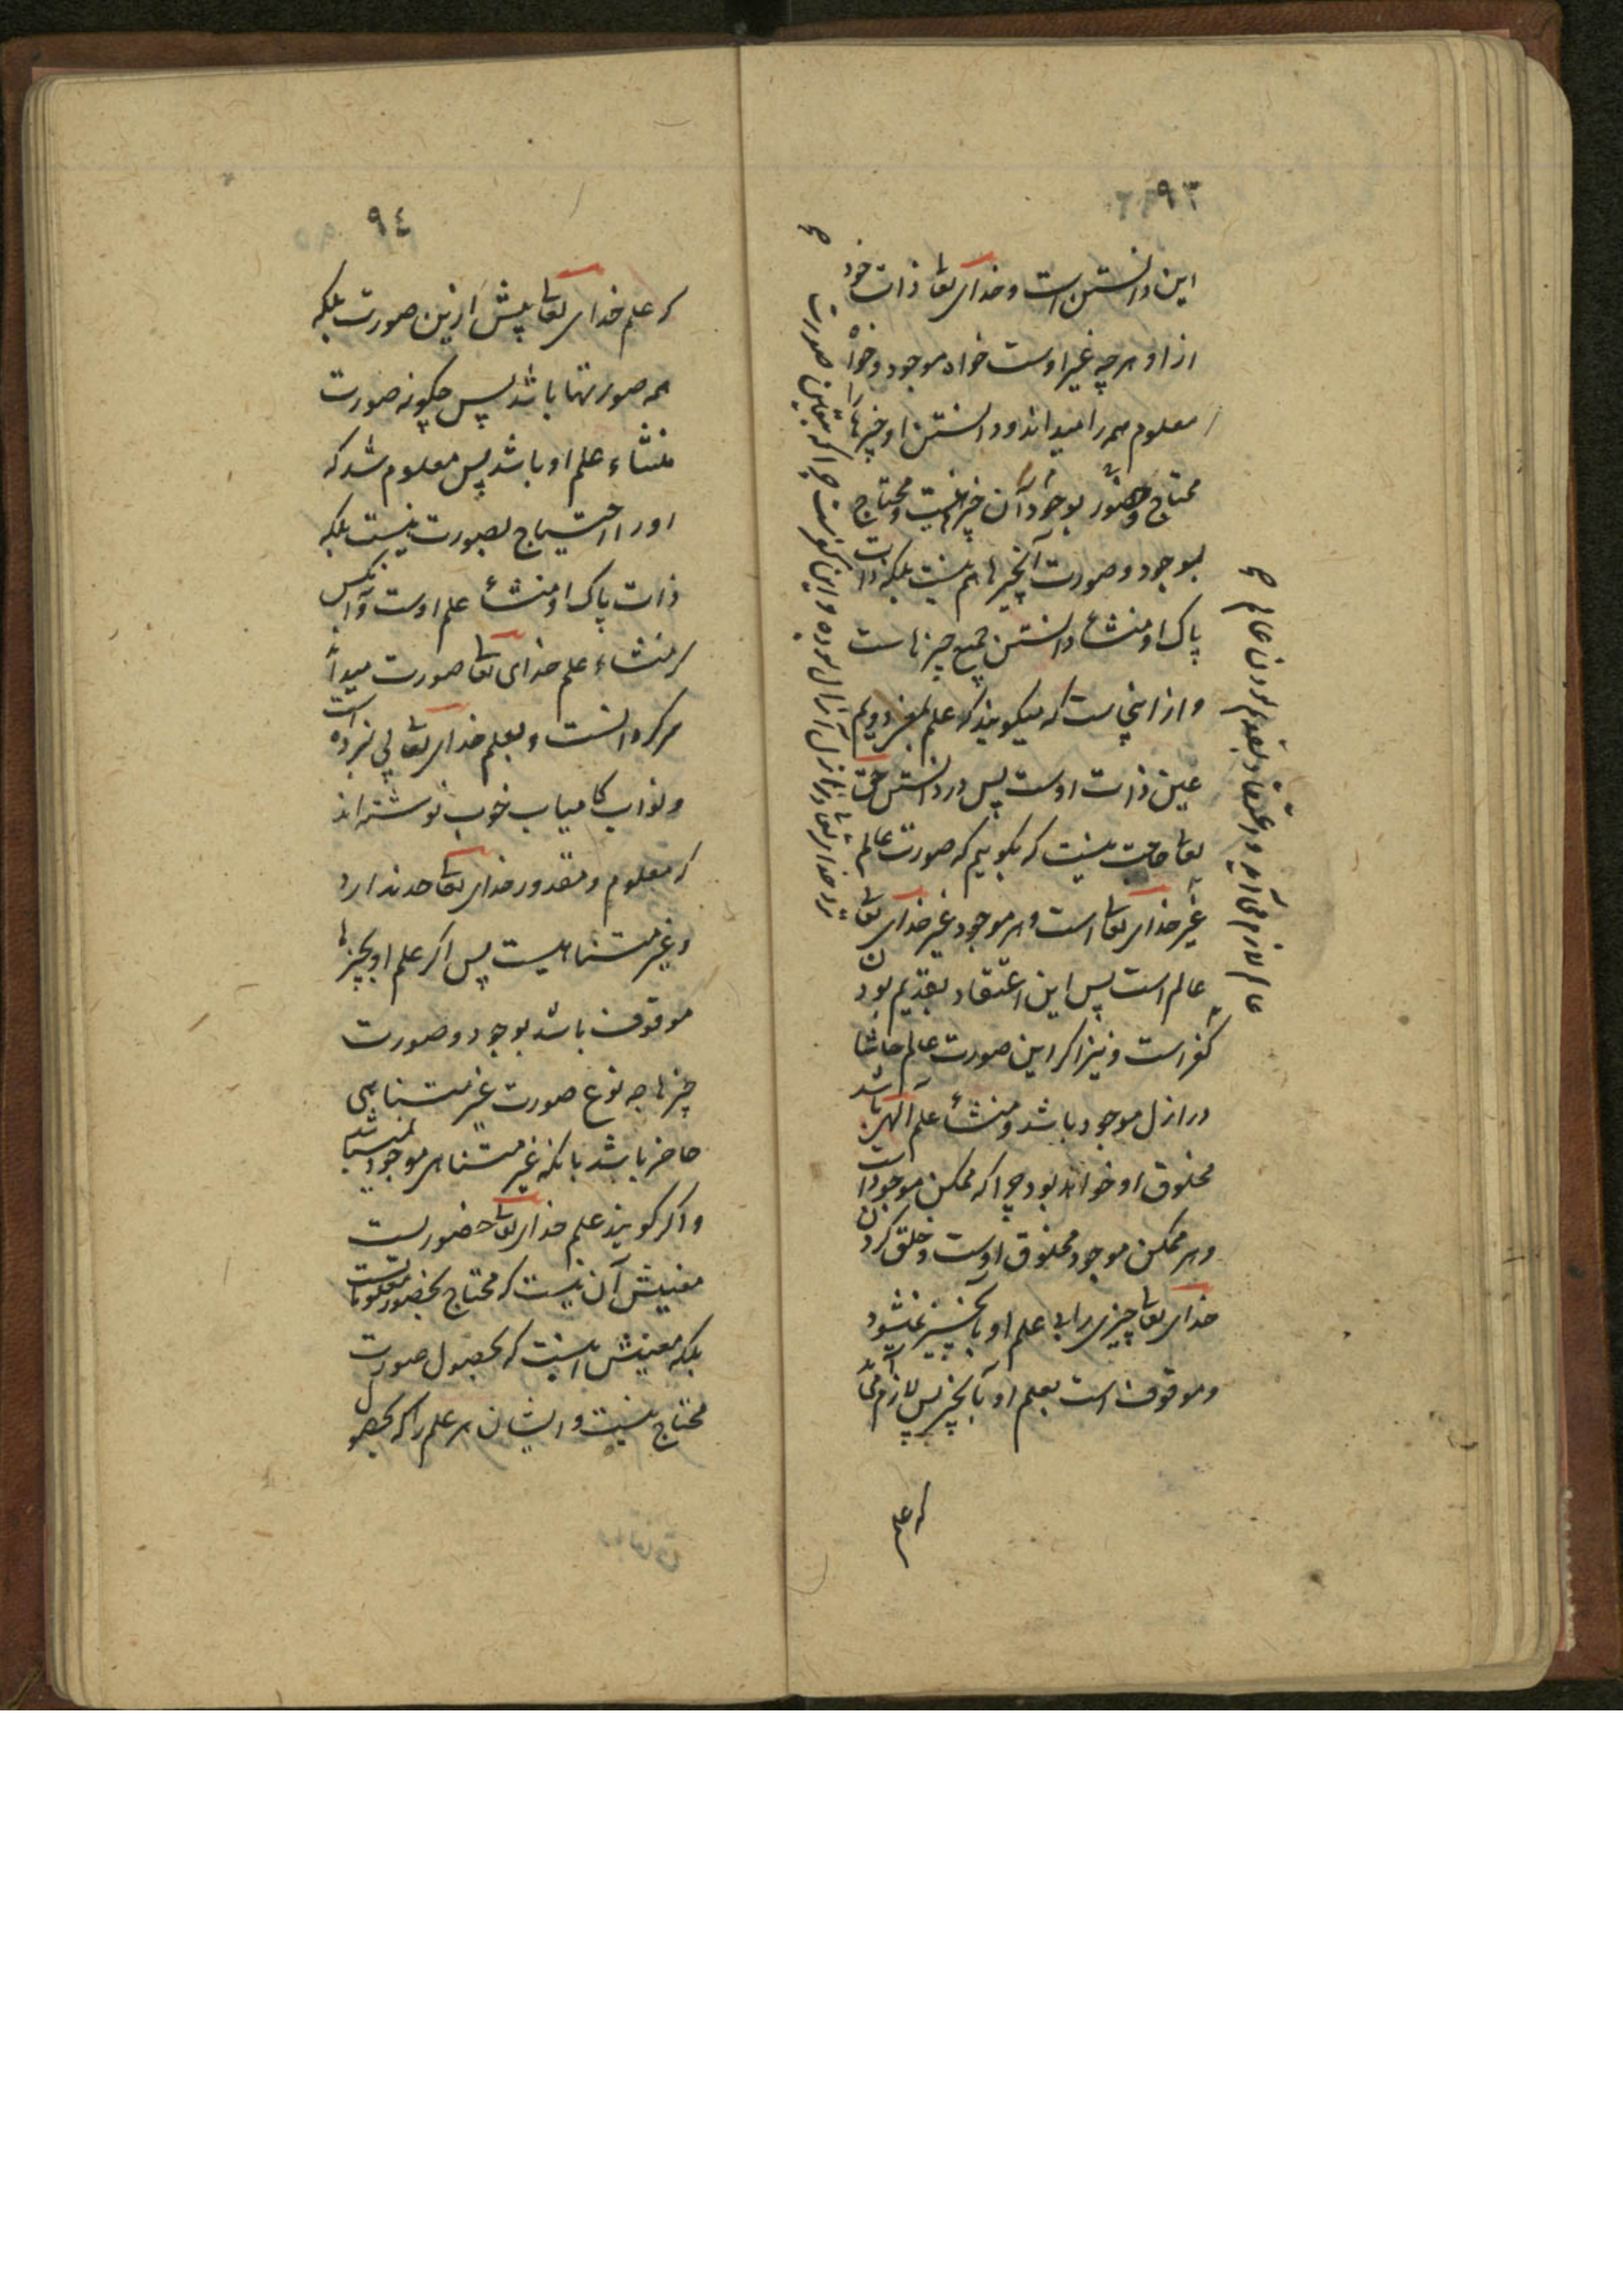 ۹۳
این دانستن است و خدای تعا ذات خود
از او هر چه غیر اوست خواه موجود و خواه
معلوم همه را میداند و دانستن او چیزها را
محتاج وحضور بوجود آن چیزها نیست و محتاج
بوجود و صورت آنچیزها هم نیست بلکه ذات
پاک او منشاء دانستن جمیع چیزهاست
و از اینجاست که میگویند که علم
عین ذات اوست پس در دانستن حق
تعا حاجت نیست که بگوییم که صورت عالم
غیر خدای تعا است و هر موجود غیر خدای تعا
عالم است پس این اعتقاد بقدیم بودن
کفر است و نیز اکر این صورت عالم حاشا
در ازل موجود باشد و منشاء علم الهی باشد
مخلوق او خواهد بود چرا که ممکن موجود است
و هر ممکن موجود مخلوق اوست و خلق کردن
خدای تعا چیزی را بی علم او بآنچیز نمیشود
و موقوف است بعلم او بآنچیز پس لازم می آید
که علم
۹٤
که علم خدای تعا پیش ازین صورت بلکه
همه صورتها باشد پس چکونه صورت
منشاء علم او باشد پس معلوم شد که
او را احتیاج بصورت نیست بلکه
ذات پاک او منشاء علم اوست و آنکس
که منشاء علم خدای تعا صورت میداند
هرکز دانست و بعلم خدای تعا پی نبرده است
و نواب کامیاب خوب نوشته اند
که معلوم و مقدور خدای تعا حد ندارد
و غیر متناهیست پس اکر علم او بچیزها
موقوف باشد بوجود و صورت
چیزها چه نوع صورت غیر متناهی
حاضر باشد بانکه غیر متناهی موجود نمیباشد
و اکر کویند علم خدای تعا حضوریست
معنیش آن نیست که محتاج بحضور معلوماتست
بلکه معنیش اینست که بحصول صورت
محتاج نیست و ایشان هر علم را که بحصول